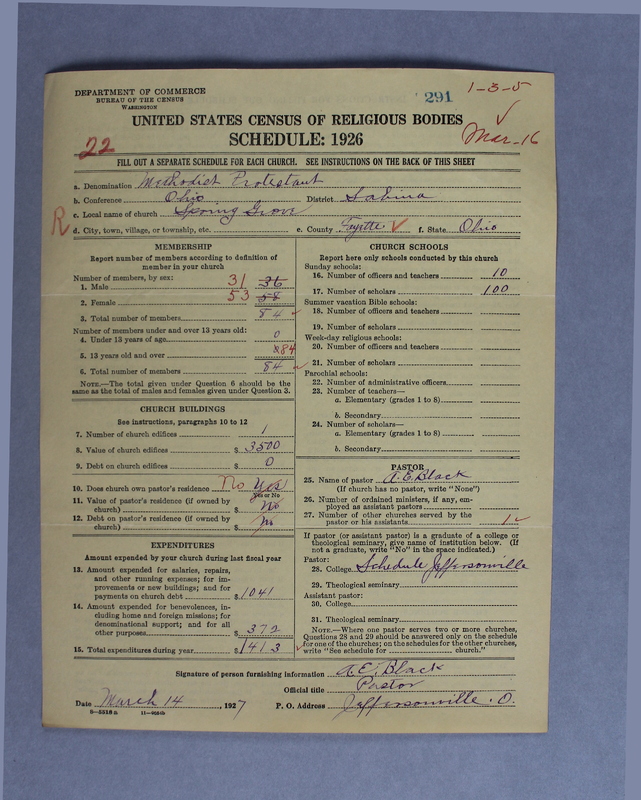 DEPARTMENT OF COMMERCE
BUREAU OF THE CENSUS
WASHINGTON
291
1-3-5
UNITED STATES CENSUS OF RELIGIOUS BODIES
SCHEDULE: 1926
22
Mar-16
FILL OUT A SEPARATE SCHEDULE FOR EACH CHURCH. SEE INSTRUCTIONS ON THE BACK OF THIS SHEET
a. Denomination Methodist Protestant
b. Conference Ohio District Sabina
c. Local name of church Spring Grove
R
d. City, town, village, or township, etc. e. County Fayette f. State Ohio
MEMBERSHIP
Report number of members according to definition of
member in your church
Number of members, by sex:
1. Male 31 36
2. Female 53 58
3. Total number of members 84
Number of members under and over 13 years old:
4. Under 13 years of age 0
5. 13 years old and over 84
6. Total number of members 84
NOTE.—The total given under Question 6 should be the
same as the total of males and females given under Question 3.
CHURCH BUILDINGS
See instructions, paragraphs 10 to 12
7. Number of church edifices 1
8. Value of church edifices $ 3500
9. Debt on church edifices $ 0
10. Does church own pastor's residence No Yes
Yes or No
11. Value of pastor's residence (if owned by
church) $ No
12. Debt on pastor's residence (if owned by
church) $ No
EXPENDITURES
Amount expended by your church during last fiscal year
13. Amount expended for salaries, repairs,
and other running expenses; for im-
provements or new buildings; and for
payments on church debt $ 1041
14. Amount expended for benevolences, in-
cluding home and foreign missions; for
denominational support; and for all
other purposes $ 372
15. Total expenditures during year $ 1413
CHURCH SCHOOLS
Report here only schools conducted by this church
Sunday schools:
16. Number of officers and teachers 10
17. Number of scholars 100
Summer vacation Bible schools:
18. Number of officers and teachers
19. Number of scholars
Week-day religious schools:
20. Number of officers and teachers
21. Number of scholars
Parochial schools:
22. Number of administrative officers
23. Number of teachers—
a. Elementary (grades 1 to 8)
b. Secondary
24. Number of scholars—
a. Elementary (grades 1 to 8)
b. Secondary
PASTOR
25. Name of pastor A. E. Black
(If church has no pastor, write "None")
26. Number of ordained ministers, if any, em-
ployed as assistant pastors
27. Number of other churches served by the
pastor or his assistants 1
If pastor (or assistant pastor) is a graduate of a college or
theological seminary, give name of institution below. (If
not a graduate, write "No" in the space indicated.)
Pastor:
28. College Schedule Jeffersonville
29. Theological seminary
Assistant pastor:
30. College
31. Theological seminary
NOTE.—Where one pastor serves two or more churches,
Questions 28 and 29 should be answered only on the schedule
for one of the churches; on the schedules for the other churches,
write "See schedule for church."
Signature of person furnishing information A. E. Black
Official title Pastor
Date March 14, 1927 P. O. Address Jeffersonville. O.